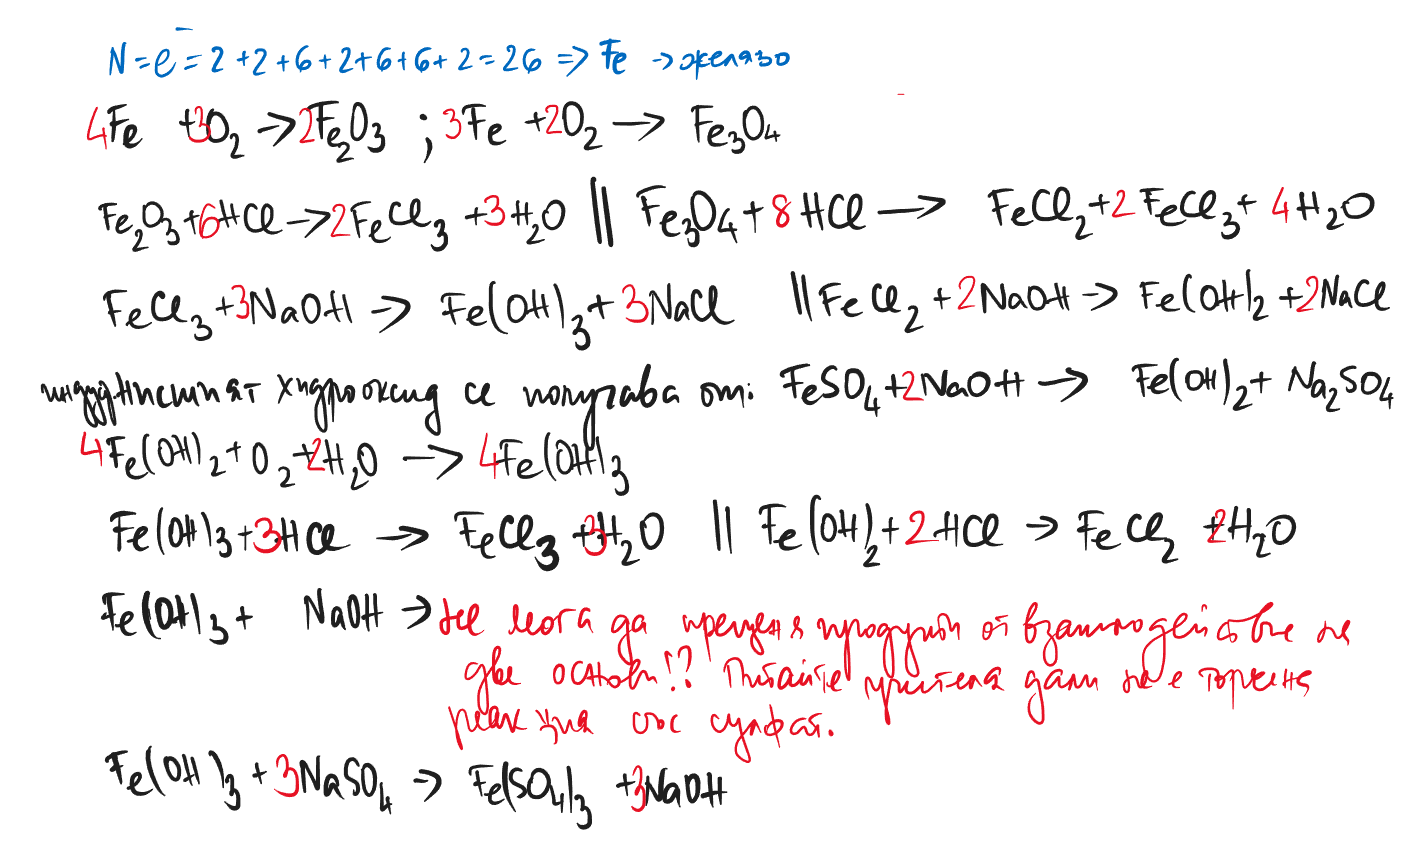 N = e⁻ = 2 + 2 + 6 + 2 + 6 + 6 + 2 = 26 => Fe → желязо
4Fe + 3O₂ → 2Fe₂O₃ ; 3Fe + 2O₂ → Fe₃O₄
Fe₂O₃ + 6HCl → 2FeCl₃ + 3H₂O || Fe₃O₄ + 8HCl → FeCl₂ + 2FeCl₃ + 4H₂O
FeCl₃ + 3NaOH → Fe(OH)₃ + 3NaCl || FeCl₂ + 2NaOH → Fe(OH)₂ + 2NaCl
хидроксид се получава от: FeSO₄ + 2NaOH → Fe(OH)₂ + Na₂SO₄
4Fe(OH)₂ + O₂ + 2H₂O → 4Fe(OH)₃
Fe(OH)₃ + 3HCl → FeCl₃ + 3H₂O || Fe(OH)₂ + 2HCl → FeCl₂ + 2H₂O
Fe(OH)₃ + NaOH → Не мога да преценя продукти от взаимодействие на
две основи!? Питайте учителя дали не е торсена
реакция със сулфат.
Fe(OH)₃ + 3NaSO₄ → Fe(SO₄)₃ + 3NaOH